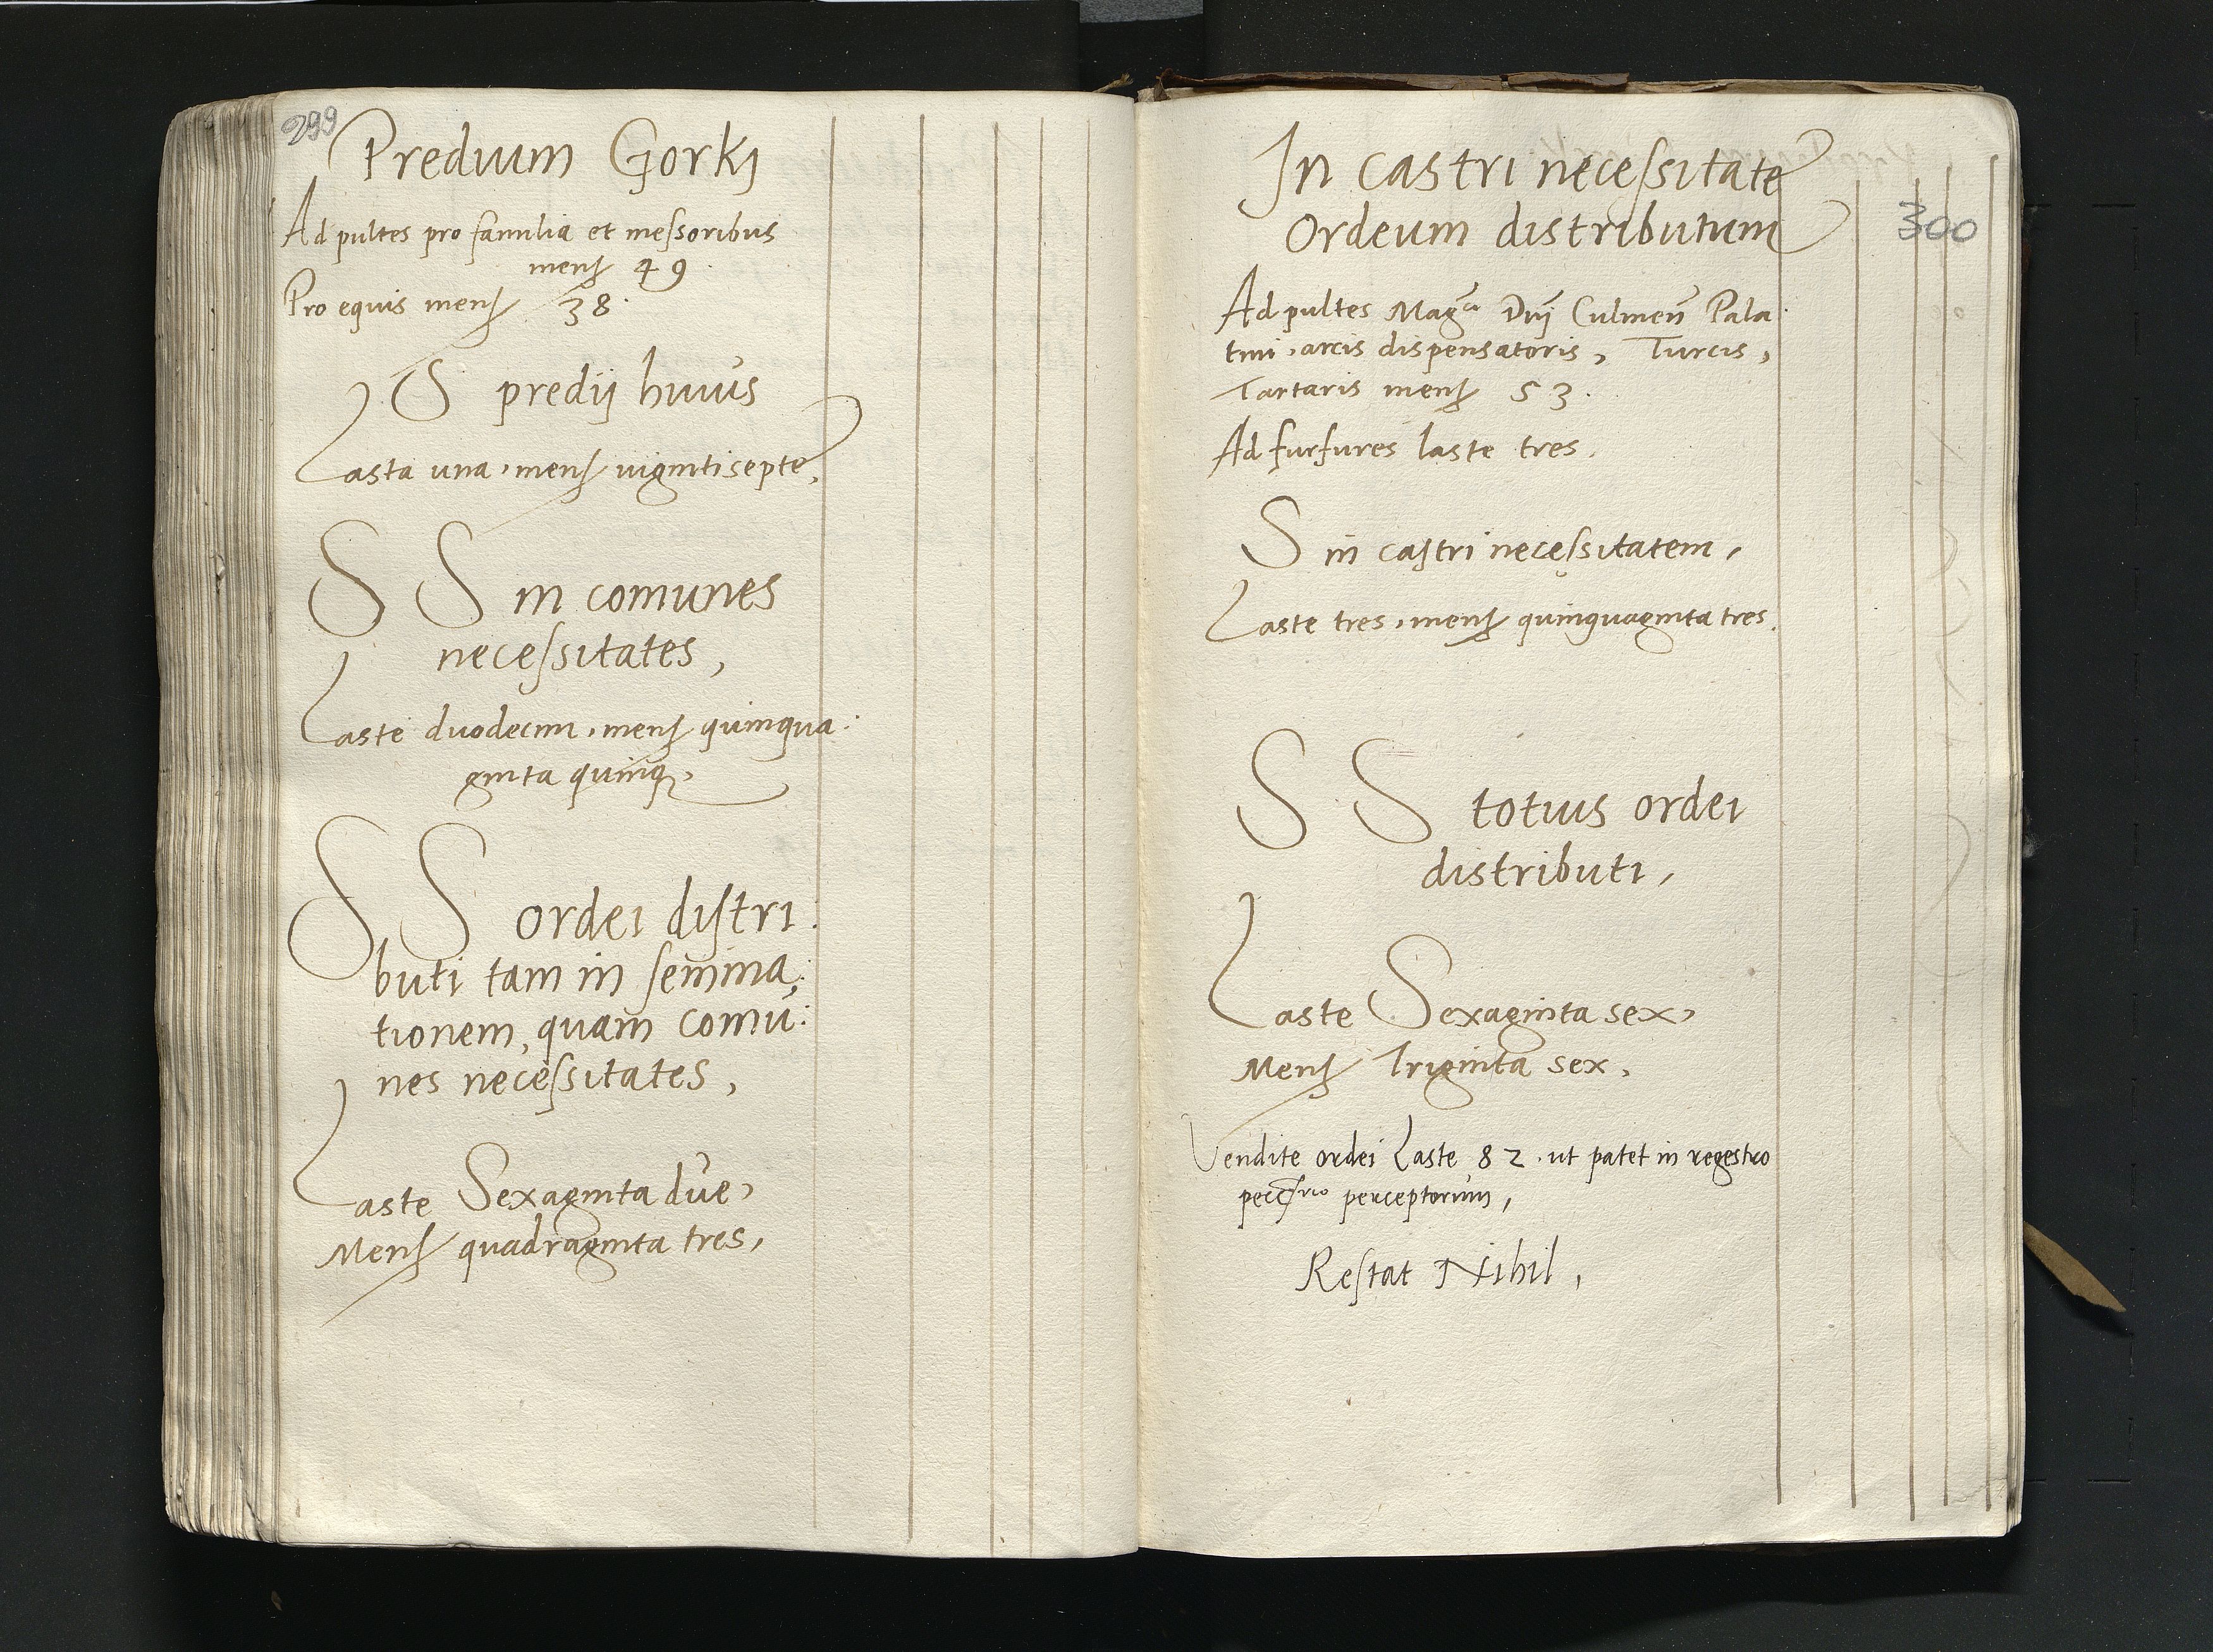 299
Predium Gorkj
Ad pultes pro familia et messoribus
mens 49.
Pro equis mens 38.
S predij huius
Lasta una, mens vigintisepte,
S S in comunes
necessitates,
Laste duodecim, mens quinqua:
ginta quinq,
S S ordei distri:
buti tam in semina:
tionem, quam comu:
nes necessitates,
Laste Sexaginta due,
Mens quadraginta tres,
300
In castri necessitate
Ordeum distributum
Ad pultes Mag Dnj Culmen Pala
tini, arcis dispensatoris, Turcis,
Tartaris mens 53.
Ad furfures laste tres.
S in castri necessitatem,
Laste tres, mens quinquaginta tres.
S S totius ordei
distributi,
Laste Sexaginta sex,
Mens Triginta sex,
Vendite ordei Laste 82. ut patet in regestro
perceptorum,
Restat Nihil,